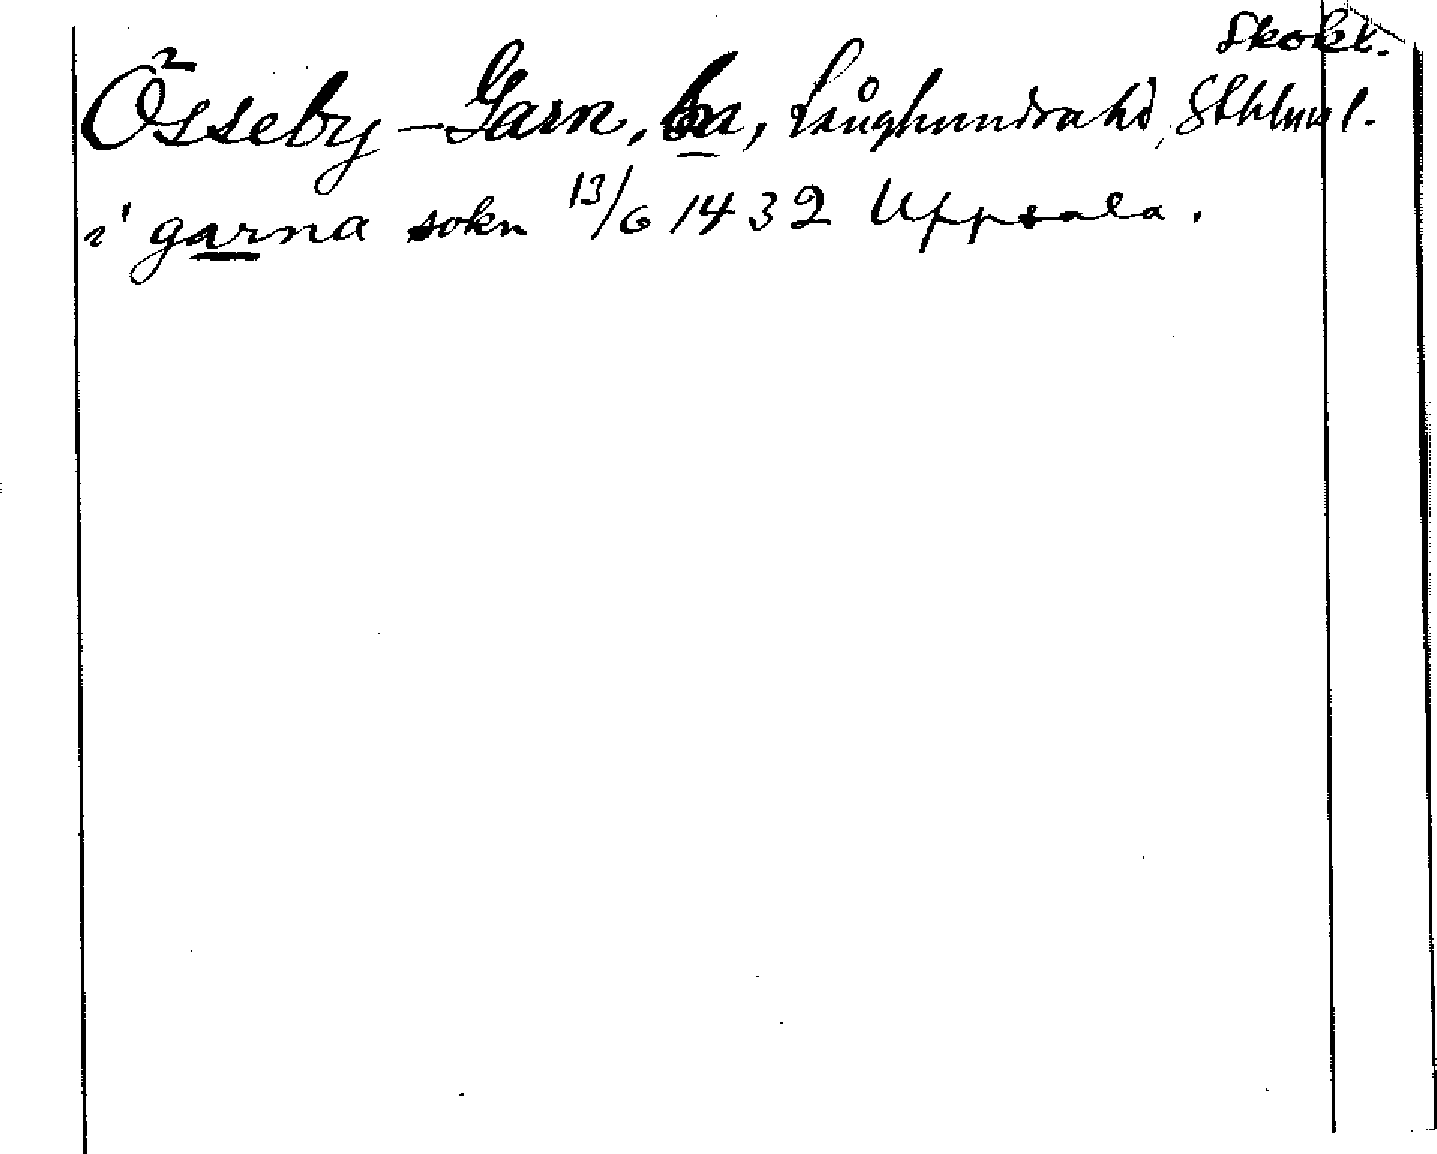 Skokl.
Össeby-Garn, sn, Långhundra hd, Sthlms l.
i garna sokn 13/6 1432 Uppsala.